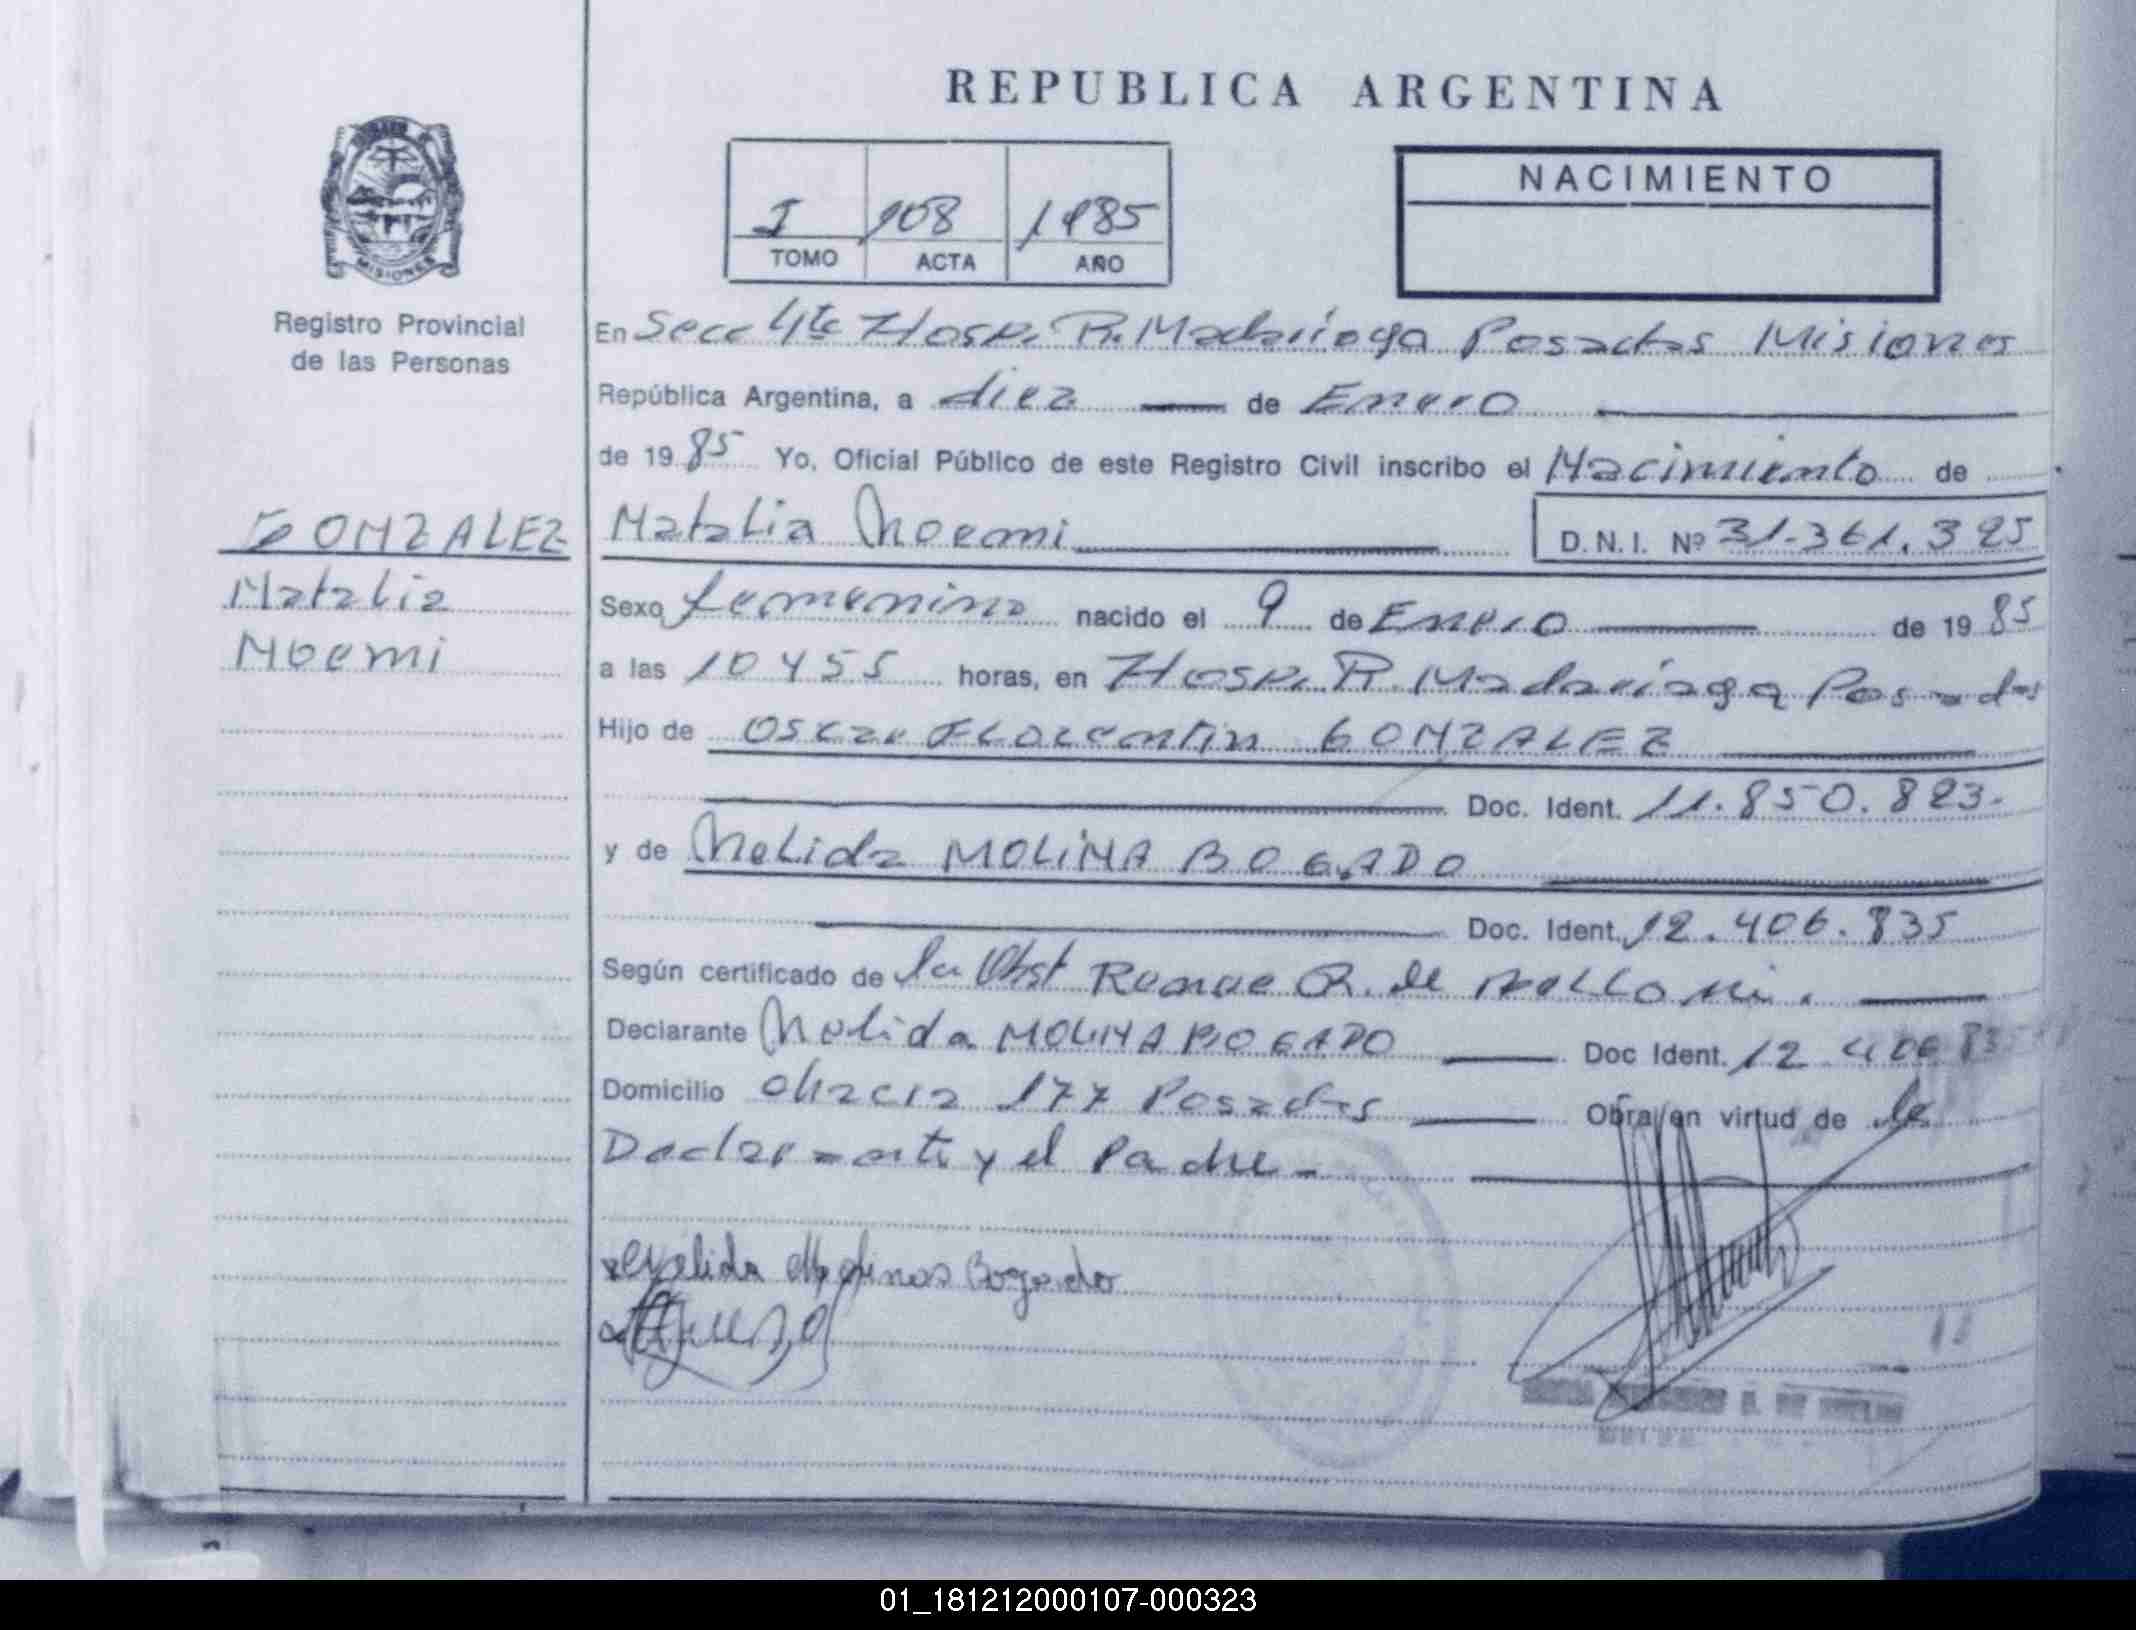 REPUBLICA ARGENTINA
I 108 1985
TOMO ACTA AÑO
NACIMIENTO
MISIONES
Registro Provincial
de las Personas
GONZALEZ
Natalia
Noemi
En Secc 4ta Hosp. R. Madariaga Posadas Misiones
República Argentina, a diez de Enero
de 1985 Yo, Oficial Público de este Registro Civil inscribo el Nacimiento de
Natalia Noemi D.N.I. Nº 31.361.325
Sexo femenino nacido el 9 de Enero de 1985
a las 10 y 55 horas, en Hosp. R. Madariaga Posadas
Hijo de Oscar Florentin GONZALEZ
Doc. Ident. 11.850.823.
y de Nelida MOLINA BOGADO
Doc. Ident. 12.406.835
Según certificado de la Obst R. de
Declarante Nelida MOLINA BOGADO Doc Ident. 12 406 835
Domicilio 177 Posadas Obra en virtud de la
Declarante y el Padre
Bogado
01_181212000107-000323